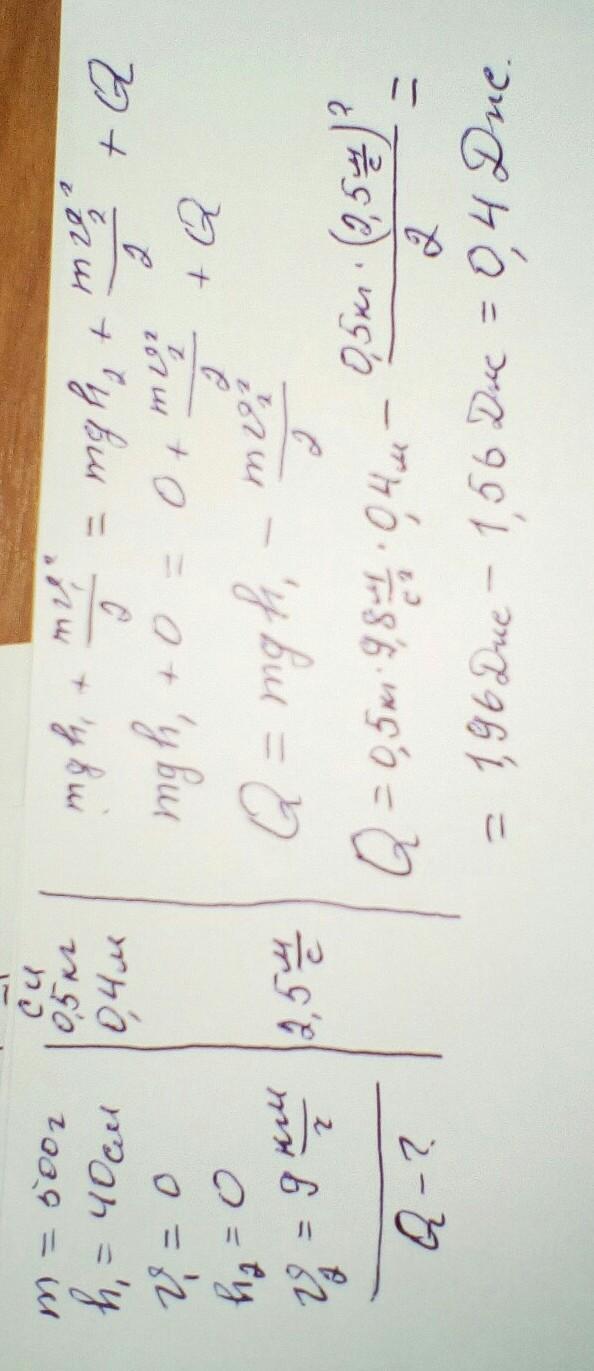 m = 500г
h₁ = 40см
υ₁ = 0
h₂ = 0
υ₂ = 9 км/г
Q - ?
СИ
0,5 кг
0,4 м
2,5 м/с
mgh₁ + mυ₁²/2 = mgh₂ + mυ₂²/2 + Q
mgh₁ + 0 = 0 + mυ₂²/2 + Q
Q = mgh₁ - mυ₂²/2
Q = 0,5кг · 9,8 м/с² · 0,4м - 0,5кг · (2,5 м/с)²/2 =
= 1,96 Дж - 1,56 Дж = 0,4 Дж.